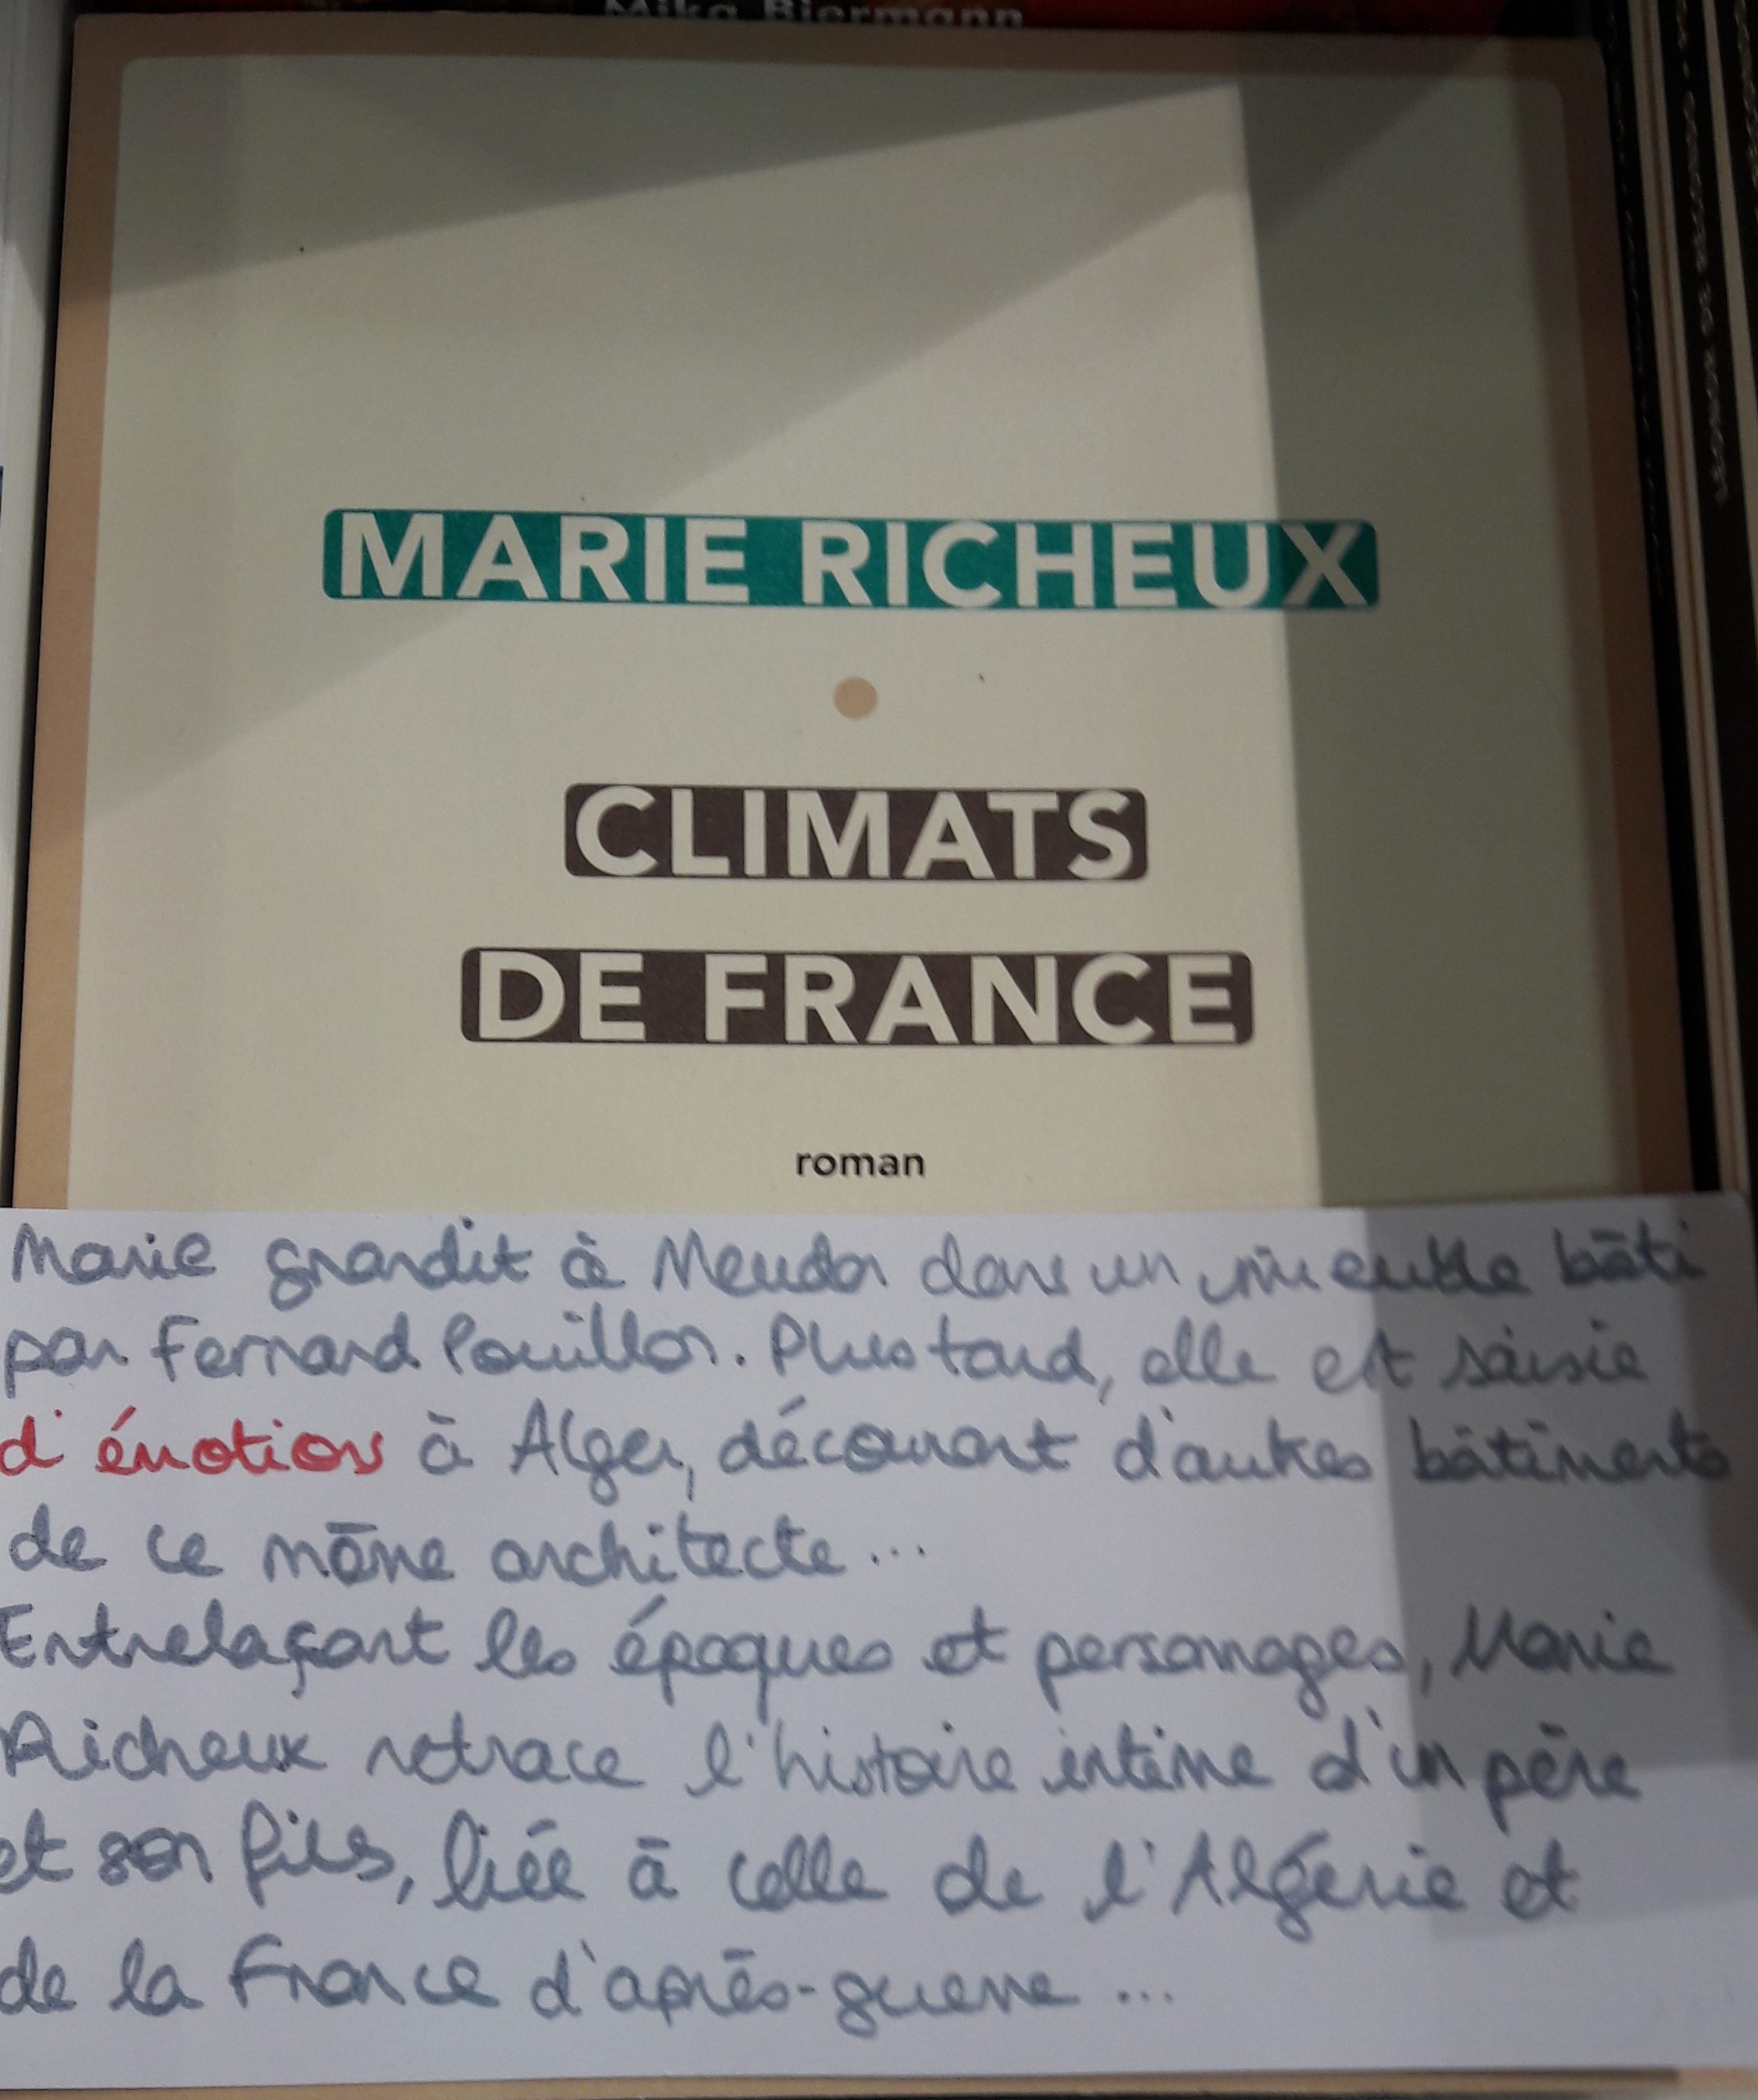 Mika Biermann
MARIE RICHEUX
CLIMATS
DE FRANCE
roman
Marie grandit à Meudon dans un immeuble bâti
par Fernand Pouillon. Plus tard, elle est saisie
d'émotion à Alger, découvrant d'autres bâtiments
de ce même architecte...
Entrelaçant les époques et personnages, Marie
Richeux retrace l'histoire intime d'un père
et son fils, liée à celle de l'Algérie et
de la France d'après-guerre...